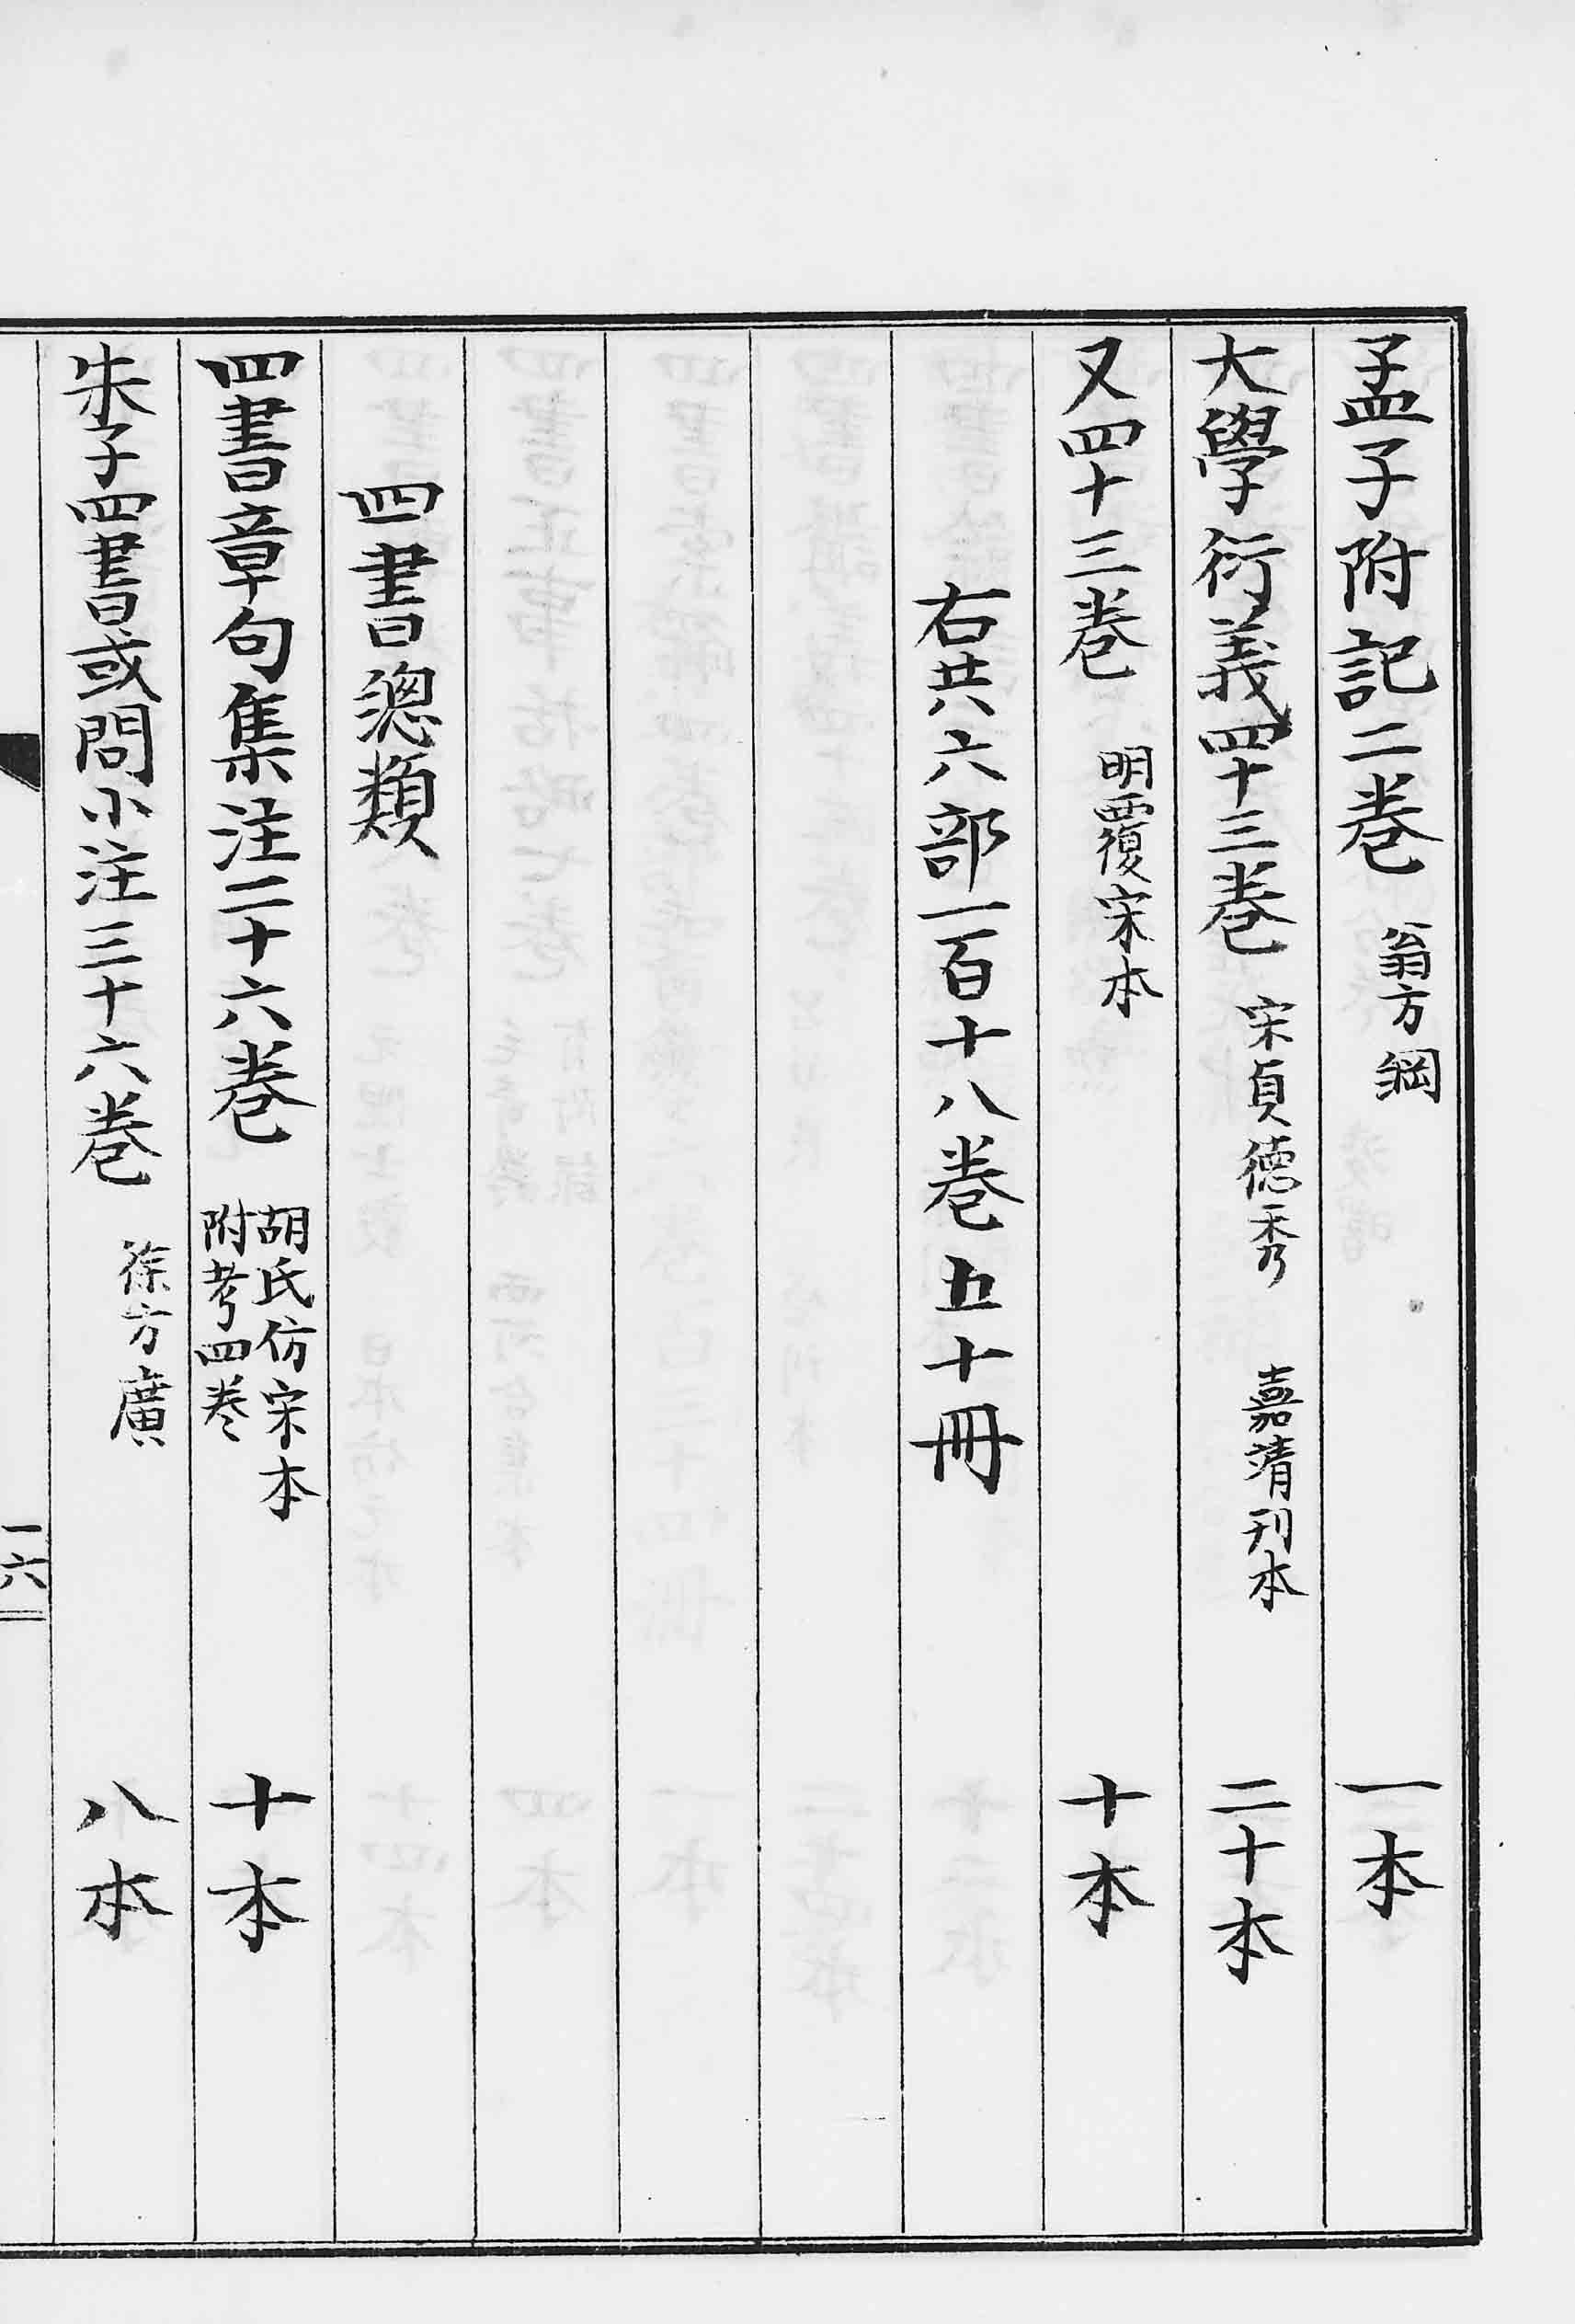 孟子附記二卷 翁方綱 一本
大學衍義四十三卷 宋真德秀 嘉靖刊本 二十本
又四十三卷 明覆宋本 十本
右共六部一百十八卷五十冊
四書總類
四書章句集注二十六卷 胡氏仿宋本 附考四卷 十本
朱子四書或問小注三十六卷 徐方廣 八本
一六